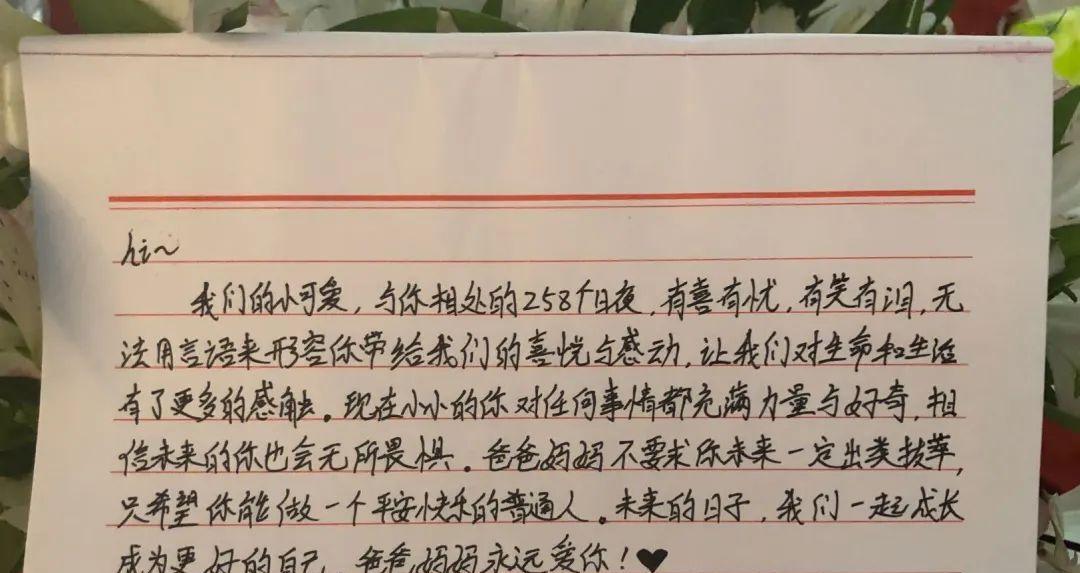 hi~
我们的小可爱,与你相处的258个日夜,有喜有忧,有笑有泪,无
法用言语来形容你带给我们的喜悦与感动,让我们对生命和生活
有了更多的感触。现在小小的你对任何事情都充满力量与好奇,相
信未来的你也会无所畏惧。爸爸妈妈不要求你未来一定出类拔萃,
只希望你能做一个平安快乐的普通人。未来的日子,我们一起成长
成为更好的自己 爸爸妈妈永远爱你!♥